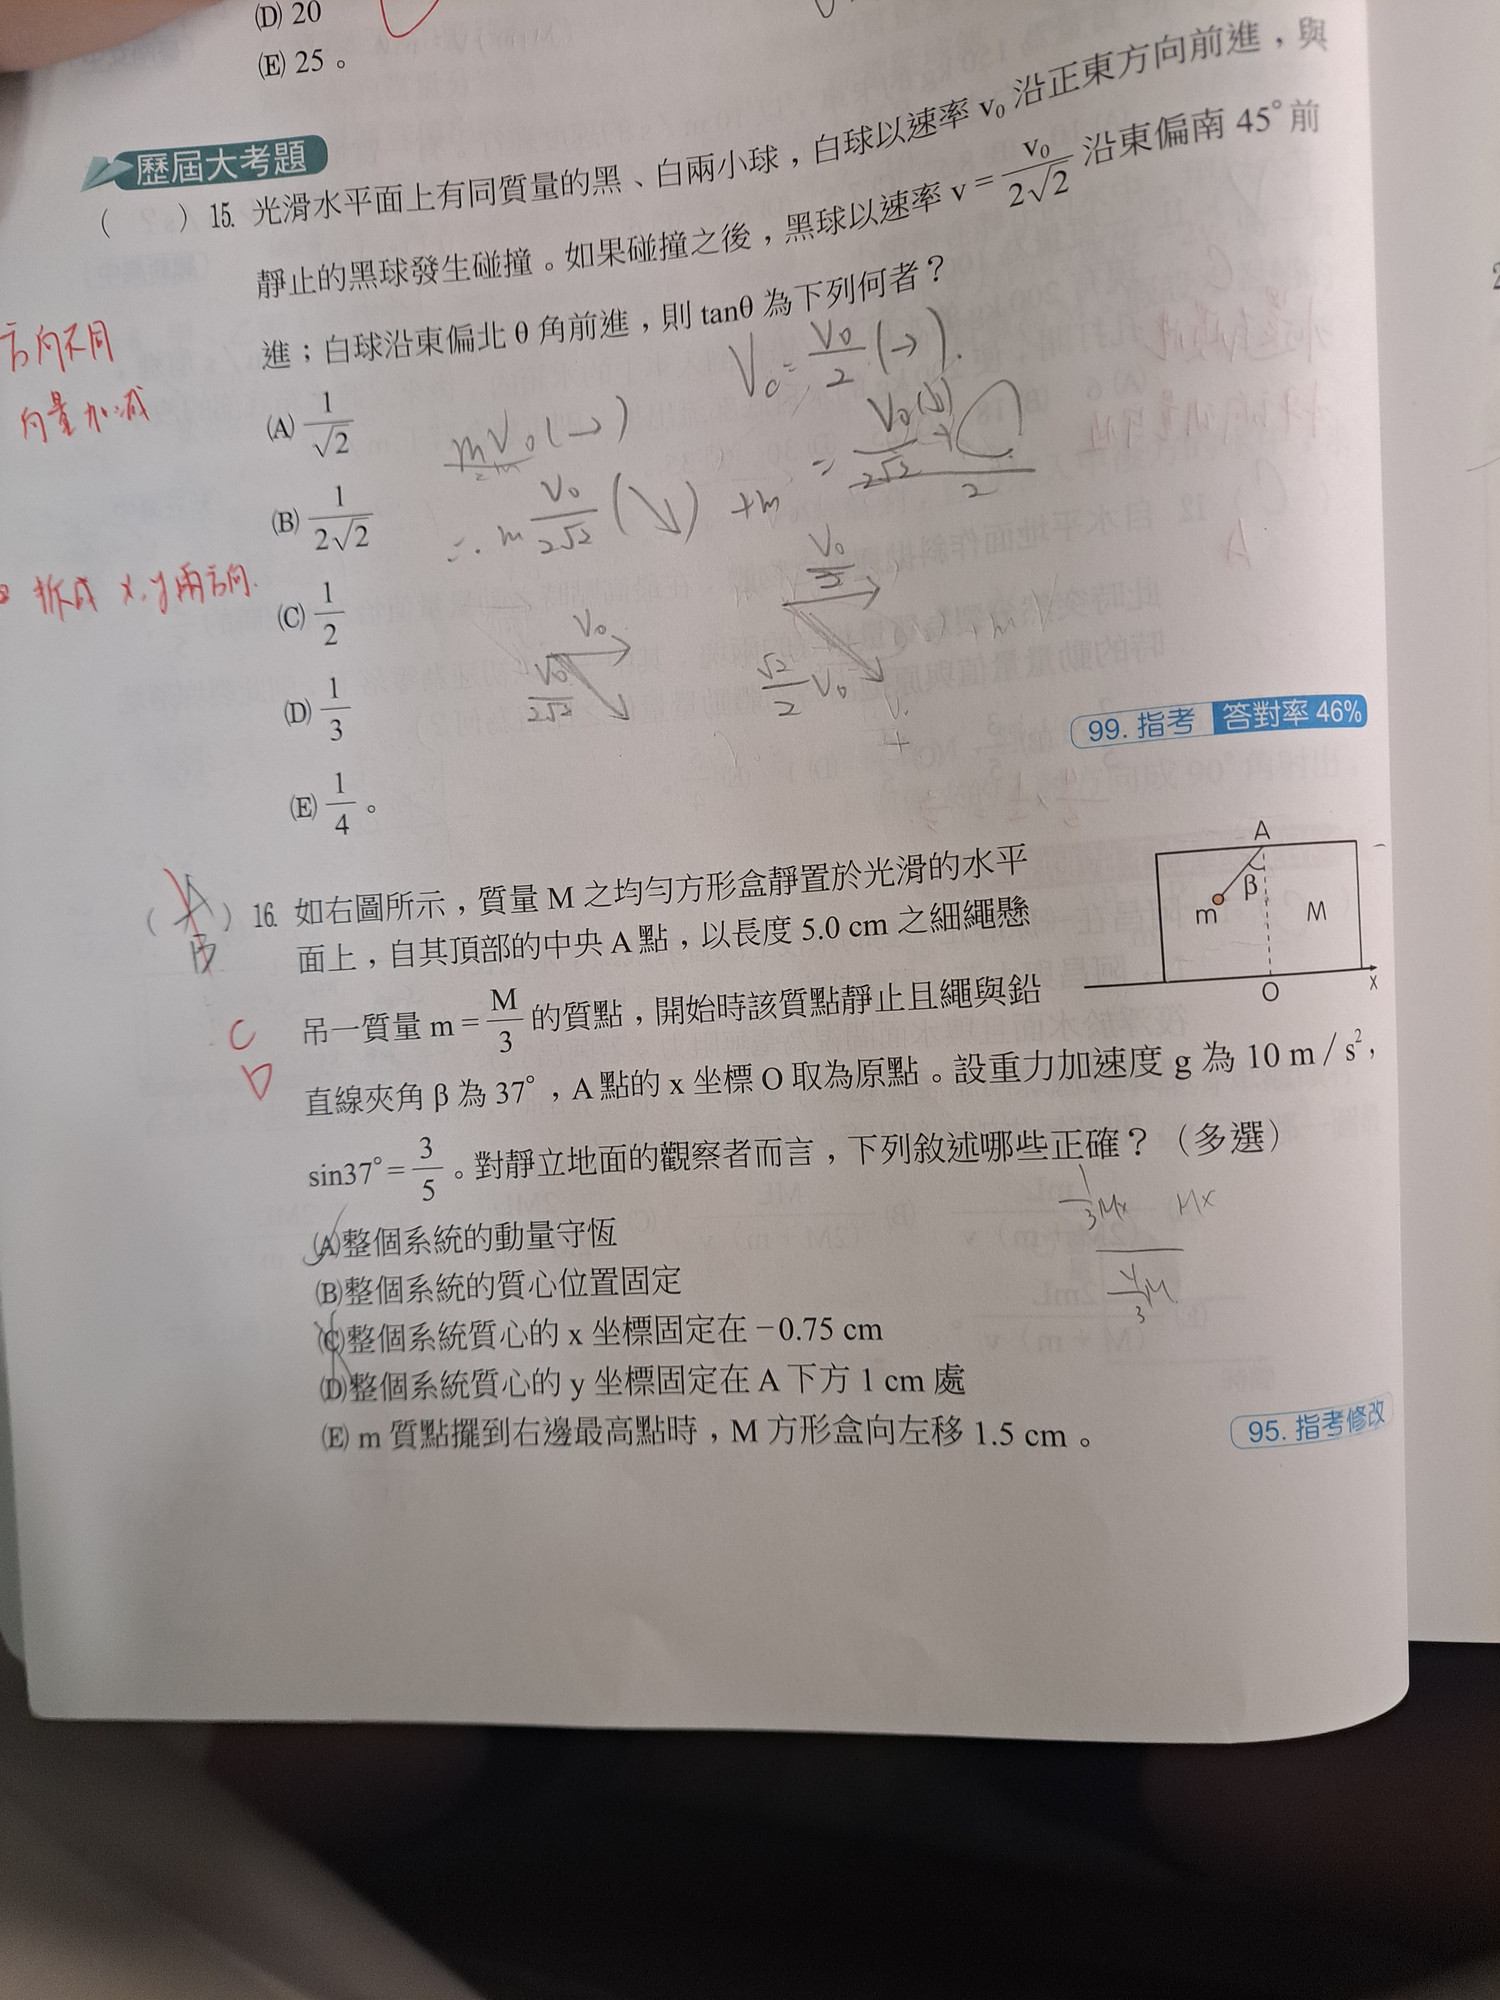 (D) 20
(E) 25。
歷屆大考題
(　) 15. 光滑水平面上有同質量的黑、白兩小球，白球以速率 v₀ 沿正東方向前進，與
靜止的黑球發生碰撞。如果碰撞之後，黑球以速率 v = v₀/2√2 沿東偏南 45° 前
進；白球沿東偏北 θ 角前進，則 tanθ 為下列何者？
方向不同
向量加減
(A) 1/√2
(B) 1/2√2
拆成 x,y 兩方向.
(C) 1/2
(D) 1/3
(E) 1/4。
99. 指考 答對率 46%
V₀
V₀/2√2
√2/2 V₀
(A B) 16. 如右圖所示，質量 M 之均勻方形盒靜置於光滑的水平
面上，自其頂部的中央 A 點，以長度 5.0 cm 之細繩懸
吊一質量 m = M/3 的質點，開始時該質點靜止且繩與鉛
C
D
直線夾角 β 為 37°，A 點的 x 坐標 O 取為原點。設重力加速度 g 為 10 m / s²，
sin37° = 3/5。對靜立地面的觀察者而言，下列敘述哪些正確？（多選）
A
β
m
M
O
x
(A)整個系統的動量守恆
(B)整個系統的質心位置固定
(C)整個系統質心的 x 坐標固定在 −0.75 cm
(D)整個系統質心的 y 坐標固定在 A 下方 1 cm 處
(E) m 質點擺到右邊最高點時，M 方形盒向左移 1.5 cm。
95. 指考修改
1/3 Mx Mx
4/3 M